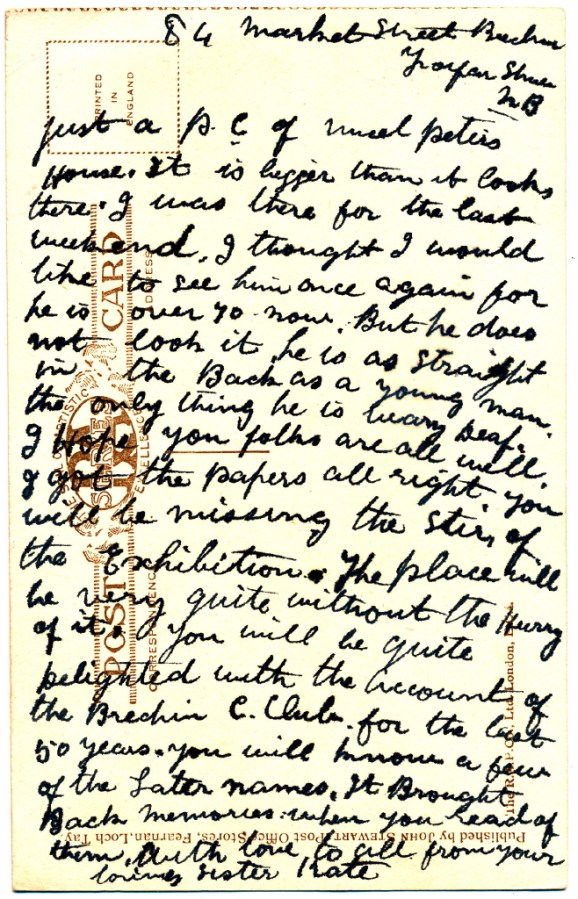 84 Market Street Brechin
Forfar Shire
N B
just a P. C of uncel peters
House. It is bigger than it looks
there. I was there for the last
weekend, I thought I would
like to see him once again for
he is over 70 now. But he does
not look it he is as straight
in the Back as a young man.
the only thing he is very Deaf.
I Hope you folks are all well.
I got the papers all right. you
will be missing the Stir, of
the Exhibition. The place will
be very quite without the Hurry
of it. you will be quite
Delighted with the account of
the Brechin C. Club. for the last
50 years. you will know a few
of the Later names. It Brought
Back memories when you read of
them, With love, to all from your
loving Sister Kate
PRINTED
IN
ENGLAND
POST CARD
SERIES
CORRESPONDENCE
ADDRESS
Published by JOHN STEWART, Post Office Stores, Fearnan, Loch Tay